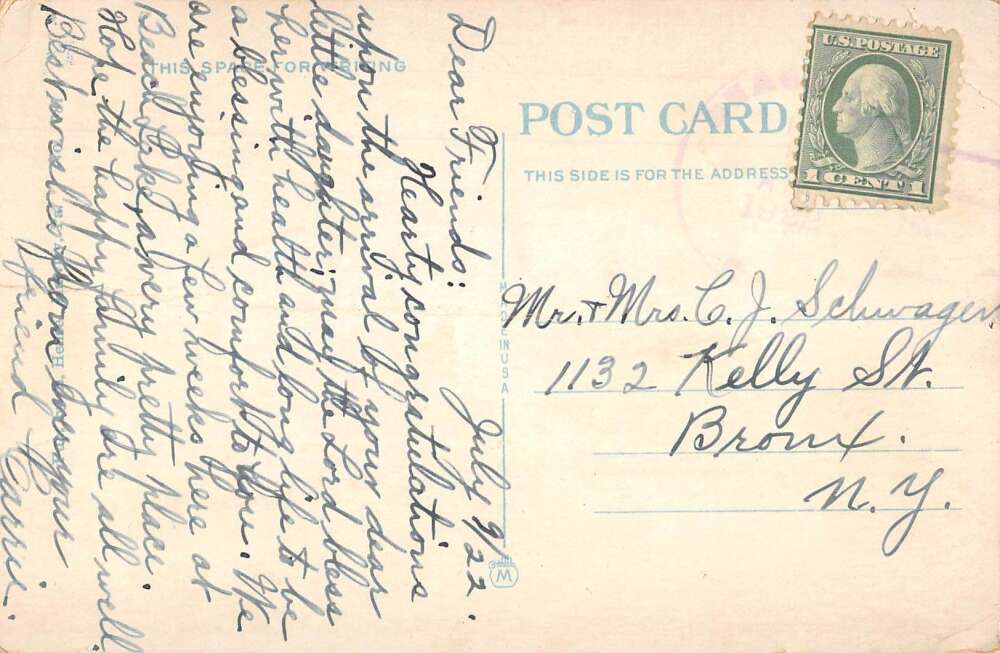 THIS SPACE FOR WRITING
July 9/22.
Dear Friends:
Hearty congratulations
upon the arrival of your dear
little daughter, may the Lord bless
her with health and long life to be
a blessing and comfort to you. We
are enjoying a few weeks here at
Beach Lake, a very pretty place.
Hope the happy family are all well
Best wishes from ever your
friend
Carrie.
POST CARD
THIS SIDE IS FOR THE ADDRESS
U.S. POSTAGE
1 CENT 1
MADE IN USA
M
Mr. + Mrs. C. J. Schwager
1132 Kelly St.
Bronx.
N. Y.